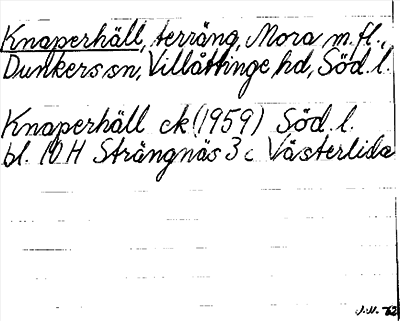 Knaperhäll, terräng, Mora m.fl.,
Dunkers sn, Villåttinge hd, Söd. l.
Knaperhäll ek (1959) Söd. l.
bl. 10 H Strängnäs 3 c Västerlida